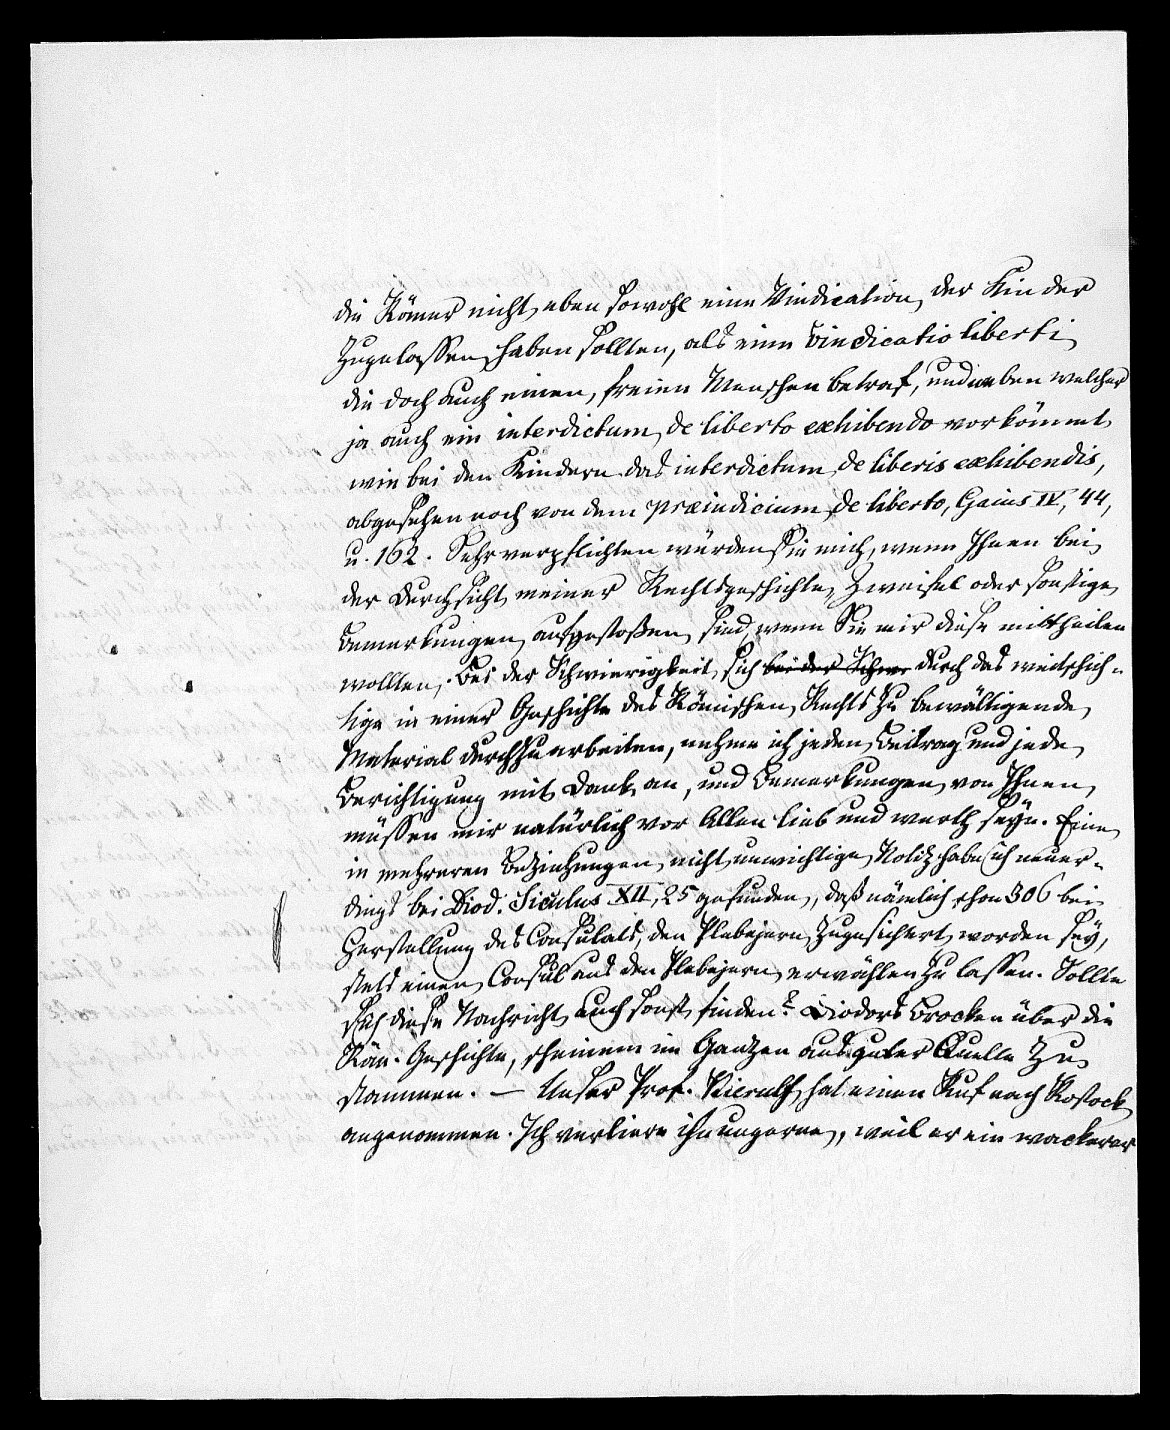 die Römer nicht eben sowohl eine Vindication der Kinder
zugelassen haben sollten, als eine vindicatio liberti
die doch auch einen freien Menschen betraf, und neben welcher
ja auch ein interdictum de liberto exhibendo vorkömmt
wie bei den Kindern das interdictum de liberis exhibendis,
abgesehen noch von dem praeiudicium de liberto, Gaius IV, 44,
u. 162. Sehr verpflichten würden Sie mich, wenn Ihnen bei
der Durchsicht meiner Rechtsgeschichte Zweifel oder sonstige
Bemerkungen aufgestoßen sind, wenn Sie mir diese mittheilen
wollten. Bei der Schwierigkeit sich bei der Schwe durch das weitschich-
tige in einer Geschichte des Römischen Rechts zu bewältigende
Material durchzuarbeiten, nehme ich jeden Beitrag und jede
Berichtigung mit Dank an, und Bemerkungen von Ihnen
müssen mir natürlich vor Allen lieb und werth seyn. Eine
in mehreren Beziehungen nicht unwichtige Notiz habe ich neuer-
dings bei Diod. Siculus XII, 25 gefunden, daß nämlich schon 306 bei
Herstellung des Consulats, den Plebejern zugesichert worden sey,
stets einen Consul aus den Plebejern erwählen zu lassen. Sollte
sich diese Nachricht auch sonst finden? Diodors Brocken über die
Röm. Geschichte, scheinen im Ganzen aus guter Quelle zu
stammen. — Unser Prof. Kierulff hat einen Ruf nach Rostock
angenommen. Ich verliere ihn ungerne, weil er ein wackerer